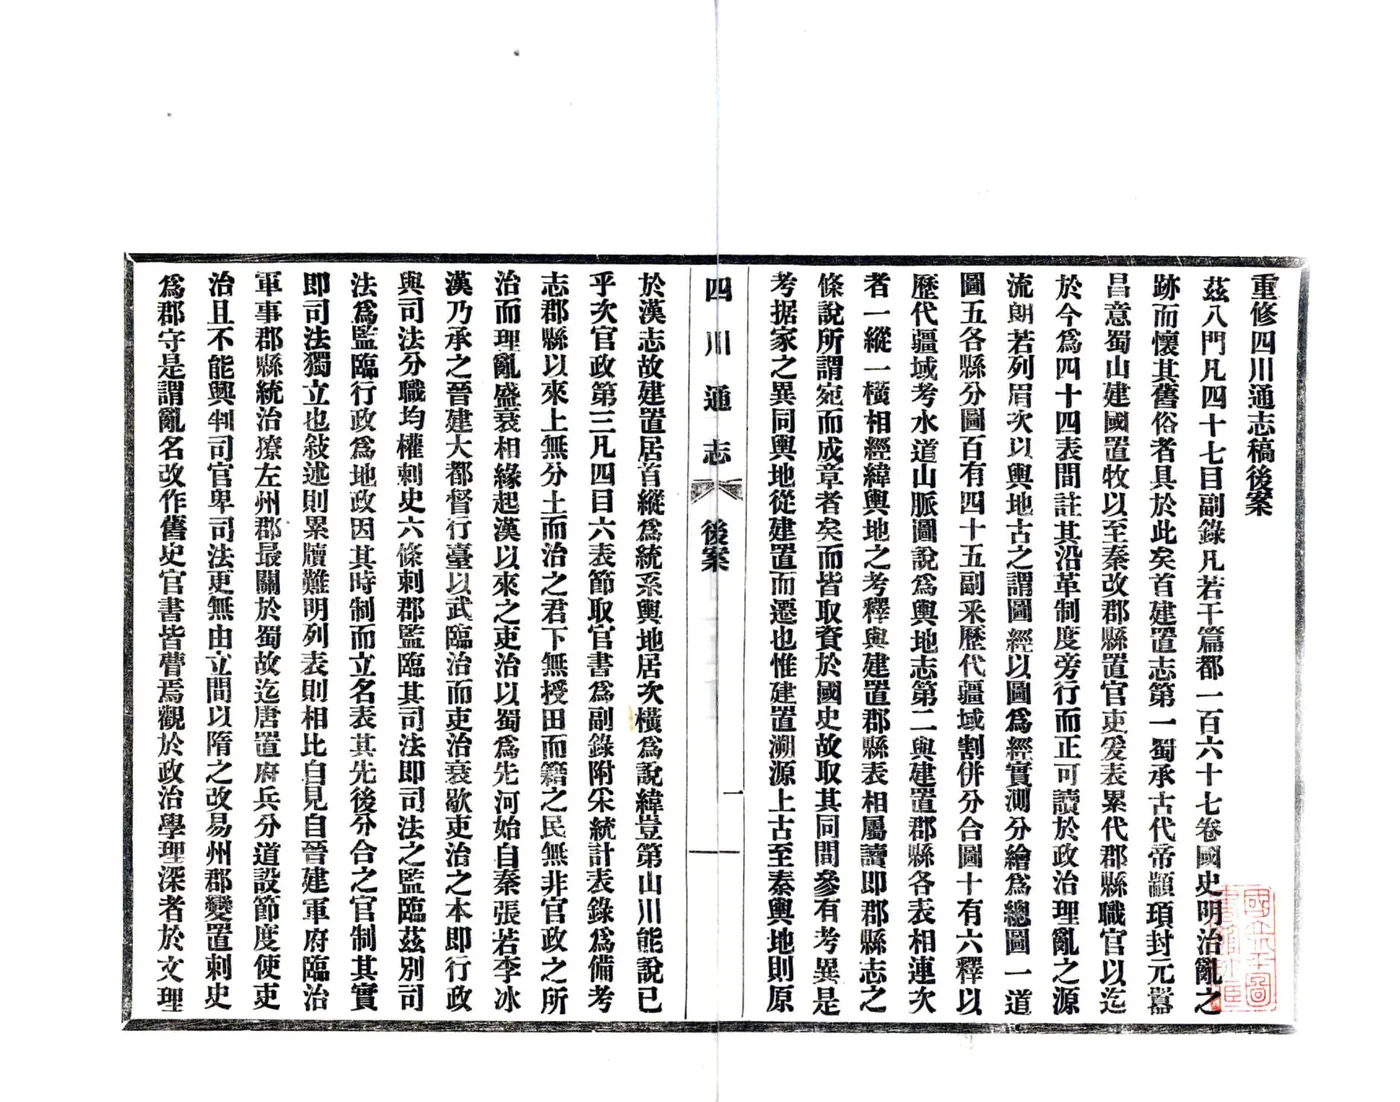 重修四川通志稿後案
茲八門凡四十七目副錄凡若干篇都一百六十七卷國史明治亂之
跡而懷其舊俗者具於此矣首建置志第一蜀承古代帝顓頊封元囂
昌意蜀山建國置牧以至秦改郡縣置官吏爰表累代郡縣職官以迄
於今為四十四表間註其沿革制度旁行而正可讀於政治理亂之源
流朗若列眉次以輿地古之謂圖經以圖為經實測分繪為總圖一道
圖五各縣分圖百有四十五副釆歷代疆域割併分合圖十有六釋以
歷代疆域考水道山脈圖說為輿地志第二與建置郡縣各表相連次
者一縱一橫相經緯輿地之考釋與建置郡縣表相屬讀即郡縣志之
條說所謂宛而成章者矣而皆取資於國史故取其同間參有考異是
考据家之異同輿地從建置而遷也惟建置溯源上古至秦輿地則原
四川通志 後案 一
於漢志故建置居首縱為統系輿地居次橫為說緯豈第山川能說已
乎次官政第三凡四目六表節取官書為副錄附宋統計表錄為備考
志郡縣以來上無分土而治之君下無授田而籍之民無非官政之所
治而理亂盛衰相緣起漢以來之吏治以蜀為先河始自秦張若李冰
漢乃承之晉建大都督行臺以武臨治而吏治衰歇吏治之本即行政
與司法分職均權刺史六條刺郡監臨其司法即司法之監臨茲別司
法為監臨行政為地政因其時制而立名表其先後分合之官制其實
即司法獨立也敍述則累牘難明列表則相比自見自晉建軍府臨治
軍事郡縣統治獠左州郡最關於蜀故迄唐置府兵分道設節度使吏
治且不能興判司官卑司法更無由立間以隋之改易州郡變置刺史
為郡守是謂亂名改作舊史官書皆瞢焉觀於政治學理深者於文理